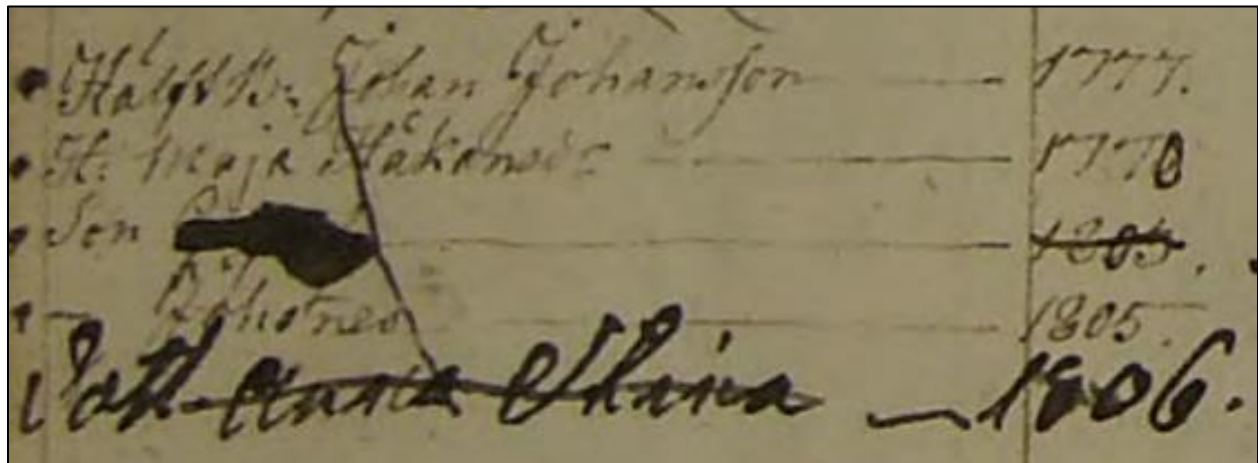 Johan Johansson — 1777.
H: Maja Håkansdr — 1770
Son — 1805.
— Johanes — 1805.
Dott. Anna Stina — 1806.